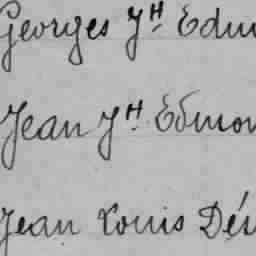 Georges Jh Edm
Jean Jh. Edmon
Jean Louis Dés